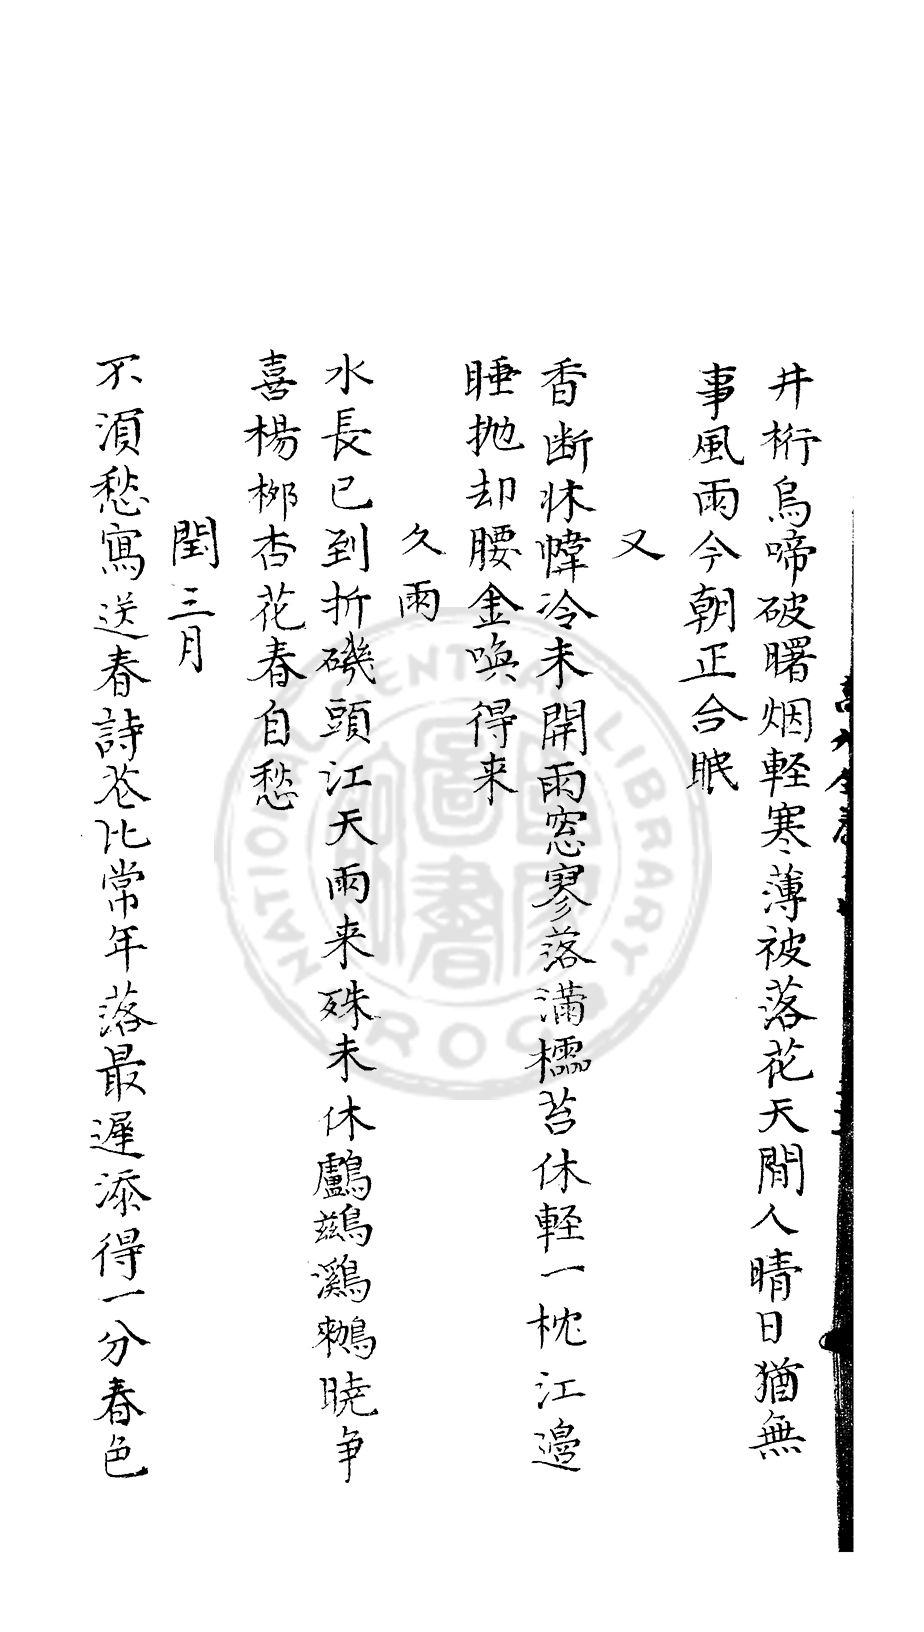 井桁烏啼破曙烟軽寒薄被落花天閒人晴日猶無
事風雨今朝正合眠
又
香断牀幃冷未開雨窓寥落满櫺苔休軽一枕江邉
睡抛却腰金喚得来
久雨
水長已到折磯頭江天雨来殊未休鸕鷀鸂鶒暁争
喜楊栁杏花春自愁
閏三月
不湏愁寫送春詩花比常年落最遲添得一分春色
NATIONAL CENTRAL LIBRARY
ROC
國家圖書